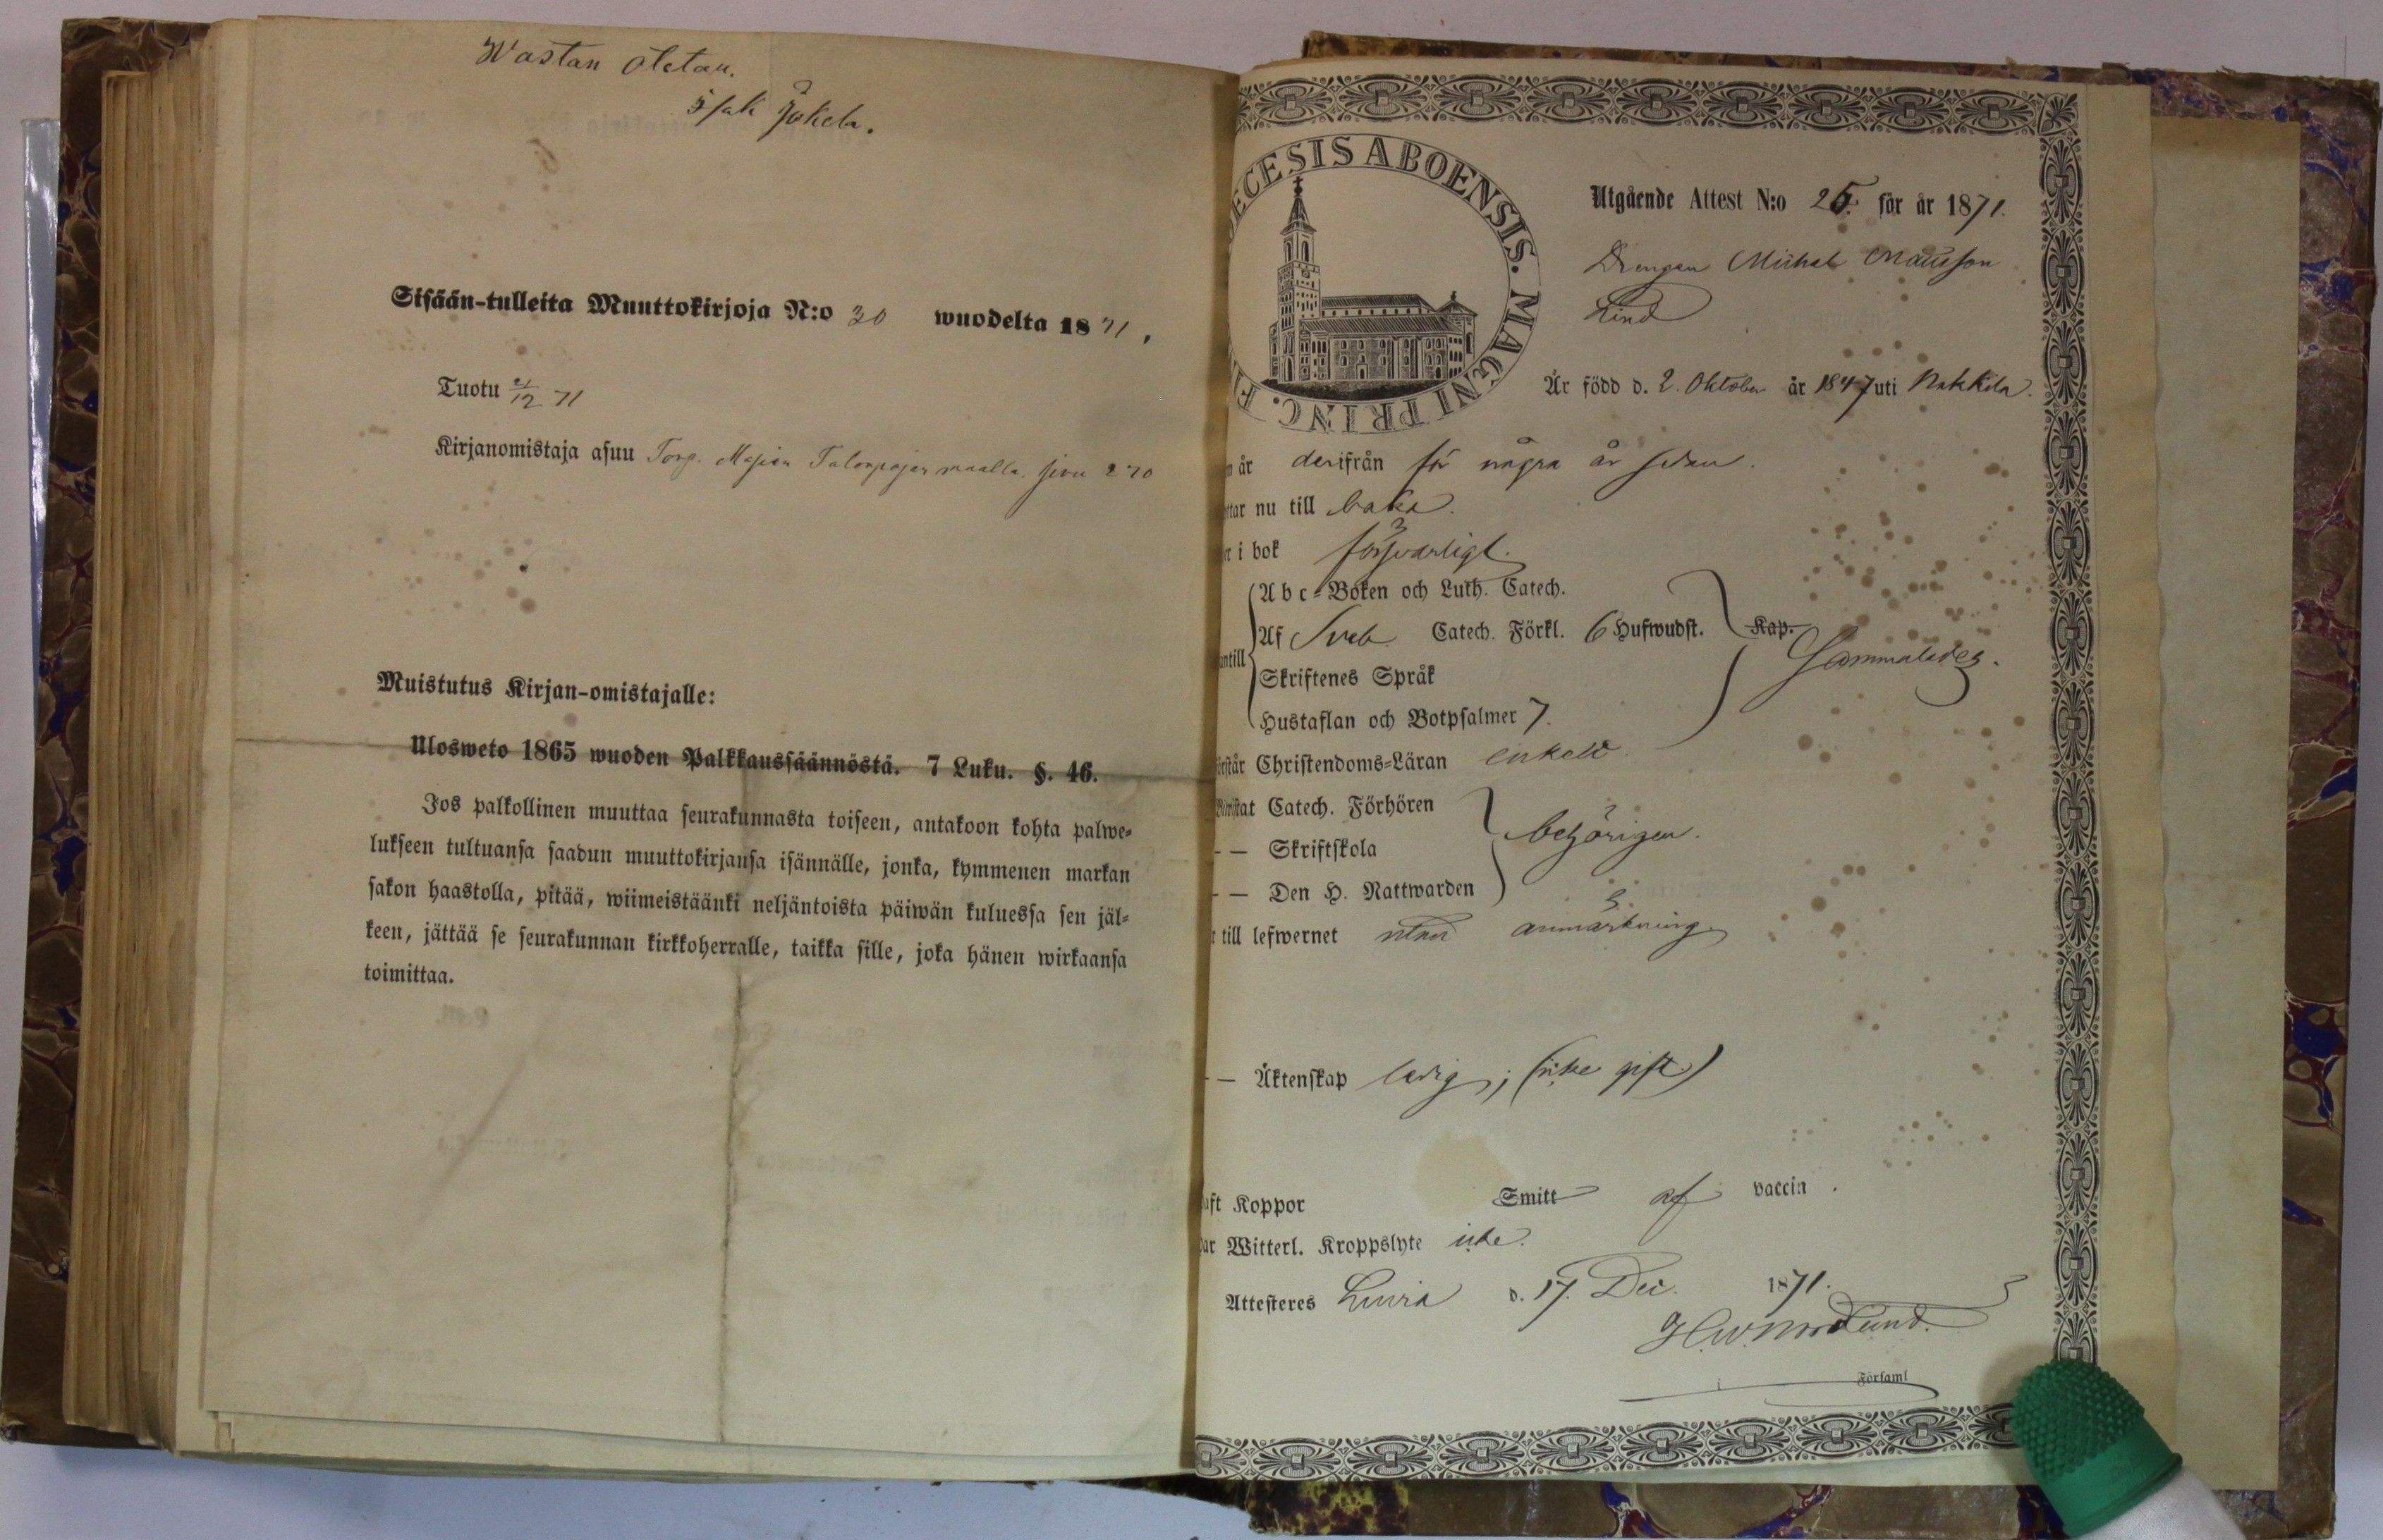 Wastan otetan.
Isak Jokela.
Sisään-tulleita Muuttokirjoja N:o 30 wuodelta 1871,
Tuotu 21/12 71
Kirjanomistaja asuu Torp. maalla. sivu 270
Muistutus Kirjan-omistajalle:
Ulosweto 1865 wuoden Palkkaussäännöstä. 7 Luku. §. 46.
Jos palkollinen muuttaa seurakunnasta toiseen, antakoon kohta palwe-
lukseen tultuansa saadun muuttokirjansa isännälle, jonka, kymmenen markan
sakon haastolla, pitää, wiimeistäänki neljäntoista päiwän kuluessa sen jäl-
keen, jättää se seurakunnan kirkkoherralle, taikka sille, joka hänen wirkaansa
toimittaa.
ECESIS ABOENSIS. MAGNI PRINC. F
Utgående Attest N:o 25. för år 1871.
Drengen Michel Matsson
Lind
Är född d. 2. Oktober år 1847 uti Nakkila.
n är derifrån för några år sedan.
ttar nu till baka.
er i bok försvarligt.
Abc-Boken och Luth. Catech.
Af Sveb. Catech. Förkl. 6 Hufwudst. Kap.
untill Sammaledes.
Skriftenes Språk
Hustaflan och Botpsalmer 7.
örstår Christendoms-Läran enkelt
Bivistat Catech. Förhören
— — Skriftskola behörigen.
— — Den H. Nattwarden
r till lefwernet utan anmärkning
— — Äktenskap ledig; (icke gift)
aft Koppor Smitt af vaccin.
ar Witterl. Kroppslyte icke.
Attesteres Luvia d. 17. Dec. 1871.
H.W. Nordlund.
Församl